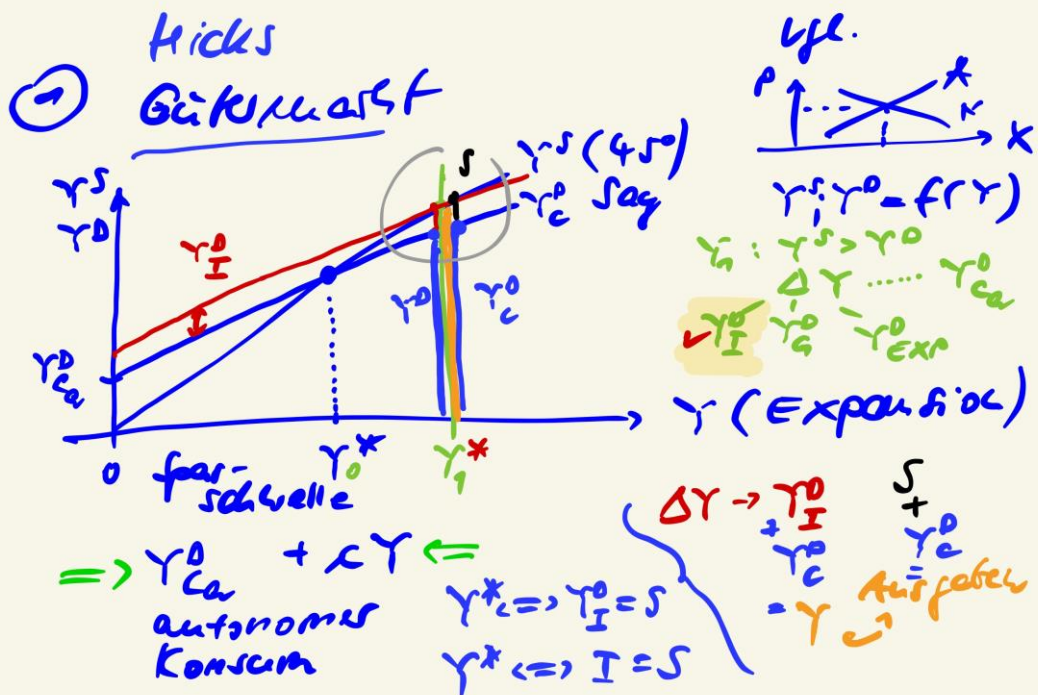 Hicks
① Gütermarkt
vgl.
P
A
K
X
Y^S
Y^D
Y^D_I
I
Y^D_Ca
0
S
Y^S (45°)
Y^D_C Say
Y^D
Y^D_C
Y_0^*
Y_1^*
Y^S, Y^D = f(Y)
Y_1: Y^S > Y^D
Δ Y ...... Y^D_Ca
✓ Y^D_I Y^D_G Y^D_EXP
Y (Expansion)
Sparschwelle
=> Y^D_Ca + cY <=
autonomer
Konsum
Y^* <=> Y^D_I = S
Y^* <=> I = S
ΔY → Y^D_I
+
Y^D_C
= Y
S
+
Y^D_C
=
Ausgeben